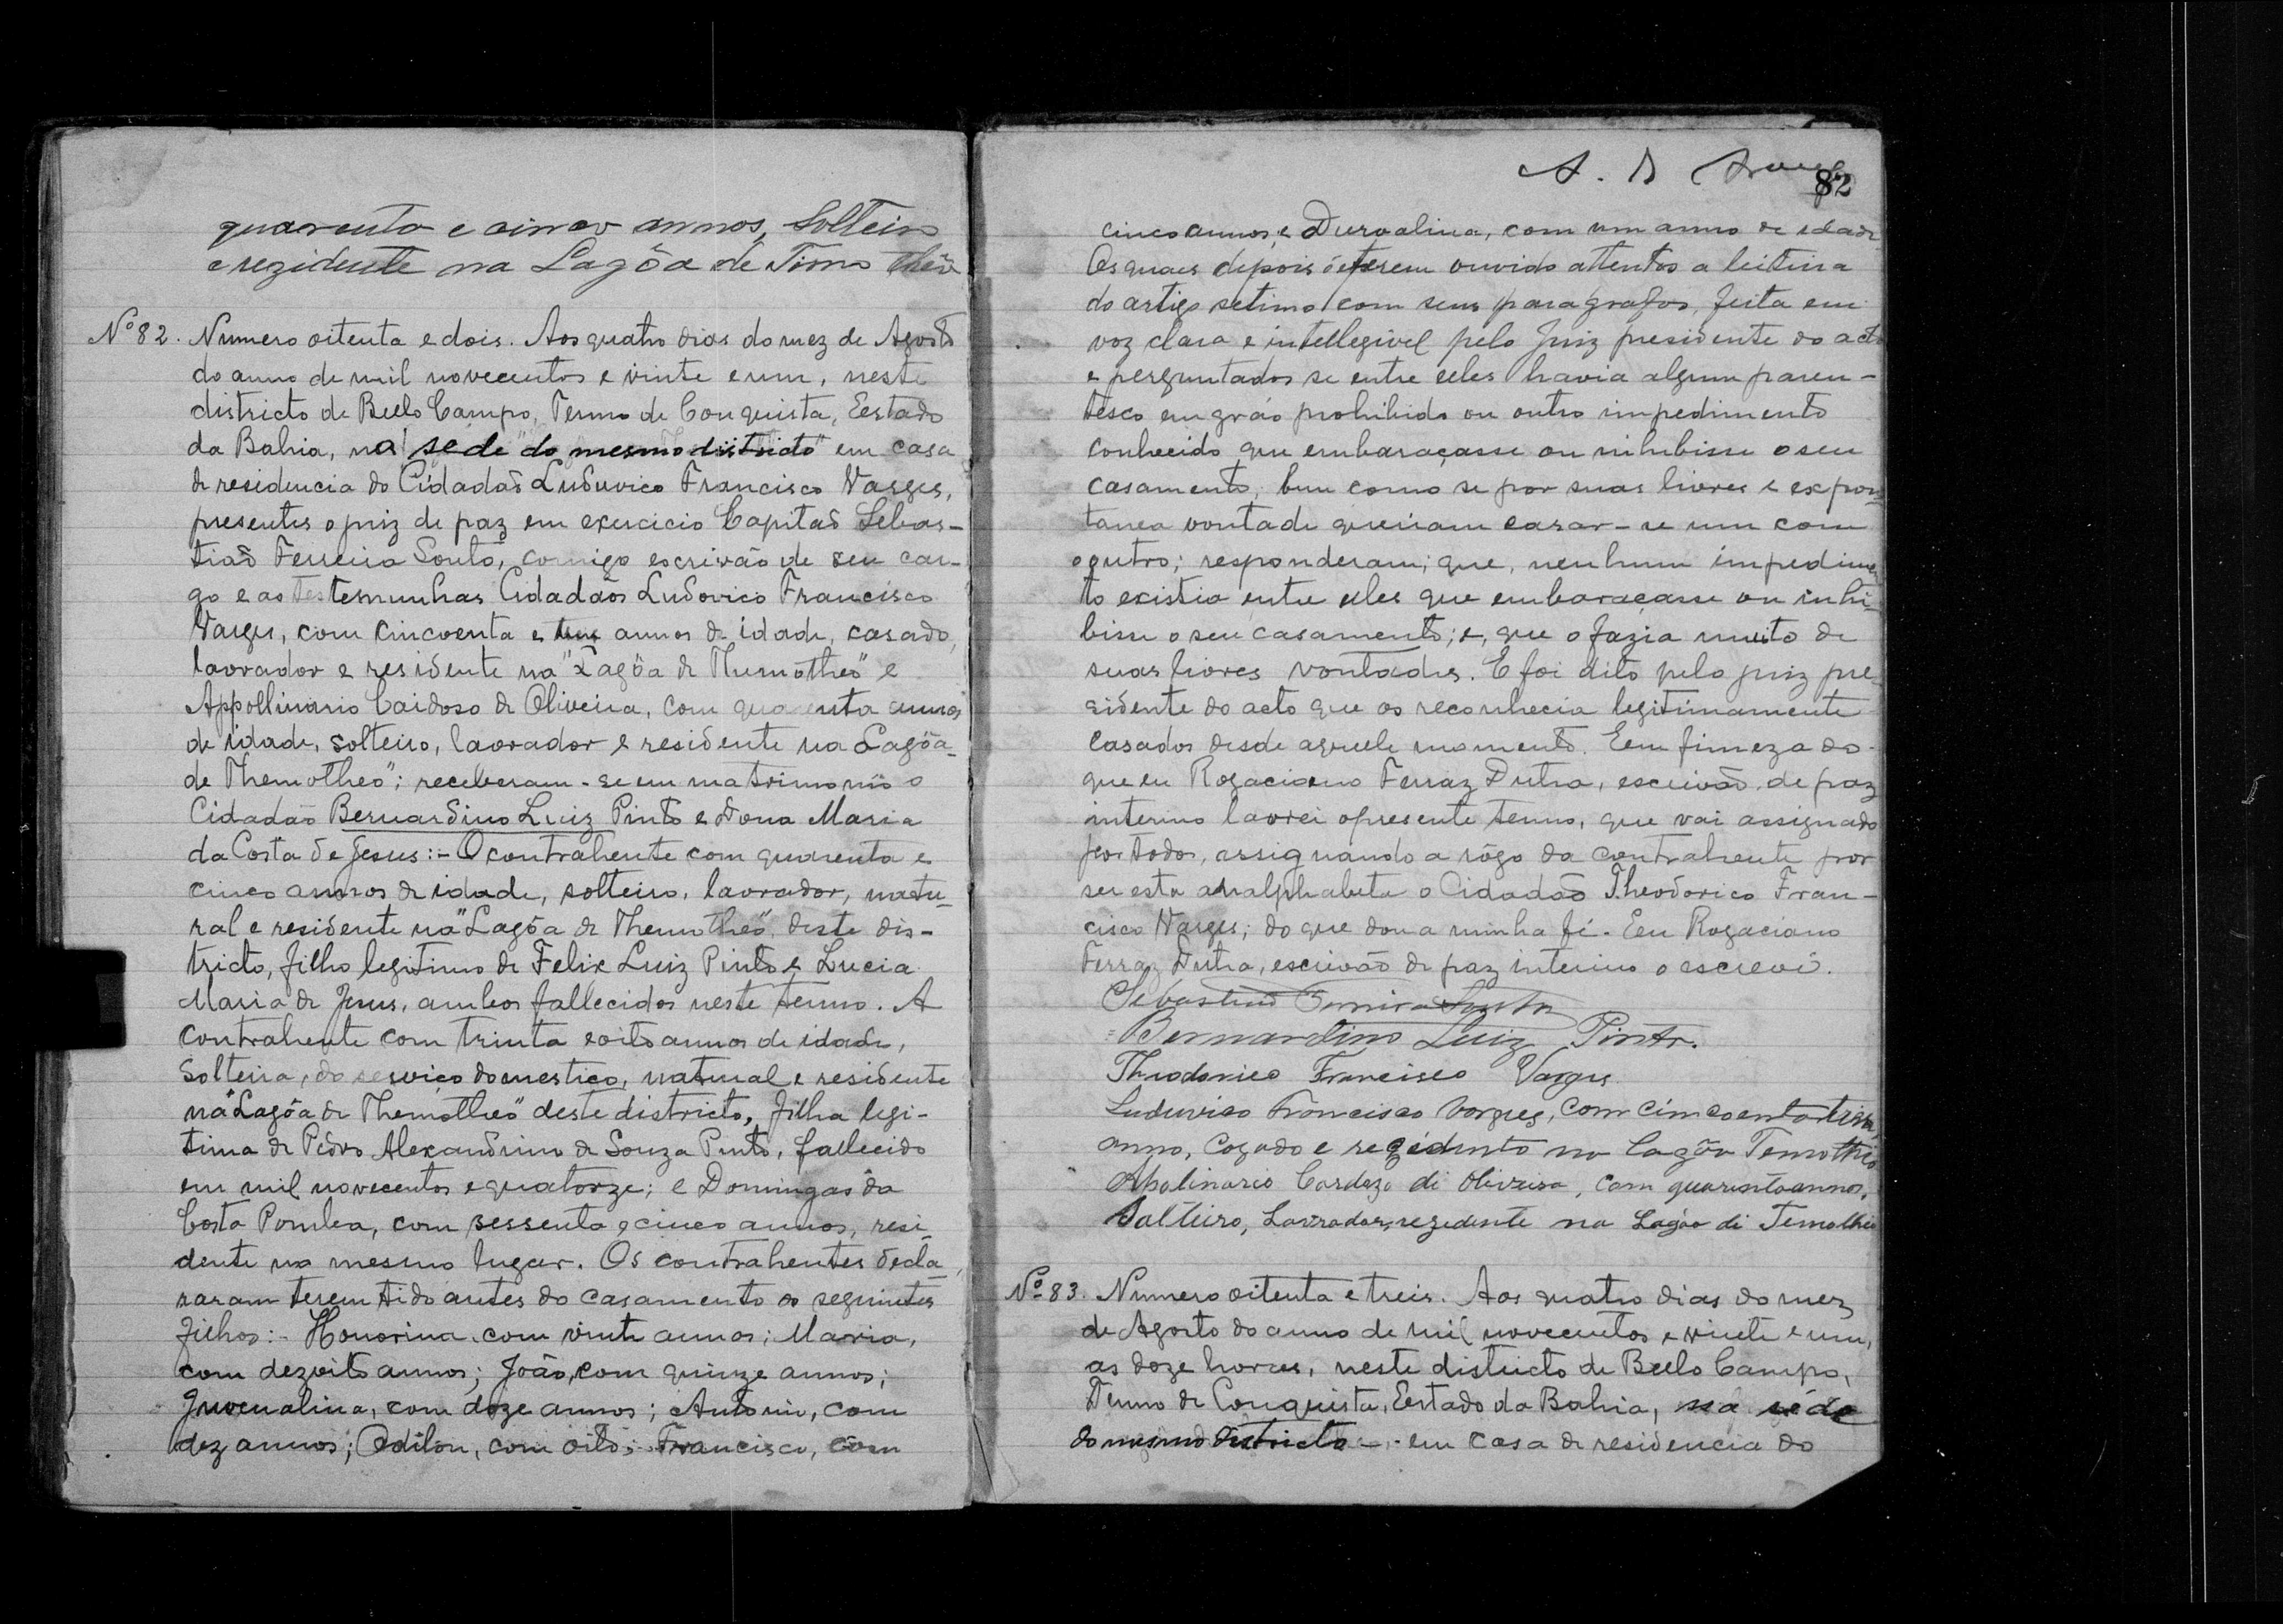 quarenta e cinco annos, Solteiro
e rezidente na Lagôa de Timo theo
Nº 82. Numero oitenta e dois. Aos quatro dias do mez de Agosto
do anno de mil novecentos e vinte e um, neste
districto de Bello Campo, Termo de Conquista, Eestado
da Bahia, na sede do mesmo districto em casa
de residencia do Cidadaõ Luduvico Francisco Varges,
presentes o juiz de paz em exercicio Capitaõ Sebas-
tiaõ Ferreira Souto, comigo escrivão de seu car-
go e as testemunhas Cidadãos Ludovico Francisco
Varges, com cincoenta e tres annos de idade, casado,
lavrador e residente na "Lagôa de Themotheo" e
Appollinario Cardoso de Oliveira, com quarenta annos
de idade, solteiro, lavrador e residente na Lagôa-
de Themotheo"; receberam-se em matrimonio o
Cidadão Bernardino Luiz Pinto e Dona Maria
da Costa de Jesus:- O contrahente com quarenta e
cinco annos de idade, solteiro, lavrador, natu-
ral e residente na "Lagôa de Themotheo", deste dis-
tricto, filho legitimo de Felix Luiz Pinto e Lucia
Maria de Jesus, ambos fallecidos neste termo. A
contrahente com trinta e oito annos de idade,
Solteira, do serviço domestico, natural e residente
na "Lagôa de Themotheo" deste districto, filha legi-
tima de Pedro Alexandrino de Souza Pinto, fallecido
em mil novecentos e quatorze; e Domingas da
Costa Pomba, com sessenta e cinco annos, resi-
dente no mesmo lugar. Os contrahentes decla-
raram terem tido antes do casamento os seguintes
filhos:- Honorina, com vinte annos; Maria,
com dezoito annos; João, com quinze annos;
Juvenalina, com doze annos; Antonio, com
dez annos; Odilon, com oito; Francisco, com
A. D
82
cinco annos, e Durvalina, com um anno de edade
Os quaes depois de terem ouvido attentos a leitura
do artigo setimo com seus paragrafos, feita em
voz clara e intellegivel pelo Juiz presidente do acto
e perguntados se entre elles havia algum paren-
tesco em gráo prohibido ou outro impedimento
conhecido que embaraçasse ou inhibisse o seu
casamento, bem como se por suas livres e expon-
tanea vontade queriam casar-se um com
o outro; responderam; que, nenhum impedimen
to existia entre elles que embaraçasse ou inhi-
bisse o seu casamento; e, que o fazia muito de
suas livres vontades. E foi dito pelo juiz pre-
sidente do acto que os reconhecia legitimamente
Casados desde aquele momento. Eem firmeza do
que eu Rogaciano Ferraz Dutra, escrivão de paz
interino lavrei o presente termo, que vai assignado
por todos, assignando a rôgo da contrahente por
ser esta analphabeta o Cidadão Theodorico Fran-
cisco Varges; do que dou a minha fé. Eeu Rogaciano
Ferraz Dutra, escrivão de paz interino o escrevi.
Sebastiaõ Ferreira Souto
Bernardino Luiz Pinto.
Theodorico Francisco Varges
Luduvico Francisco Vorges, com cincoenta tres
anno, Cazado e rezidente no Lagôa Temotheo
Apolinario Cardozo di Oliveira, com quarenta annos,
Solteiro, Lavrador, rezidente na Lagôa di Temotheo
Nº 83. Numero oitenta e treis. Aos quatro dias do mez
de Agosto do anno de mil novecentos e vinte e um,
as doze horas, neste districto de Bello Campo,
Termo de Conquista, Eestado da Bahia, na séde
do mesmo districto - em casa de residencia do